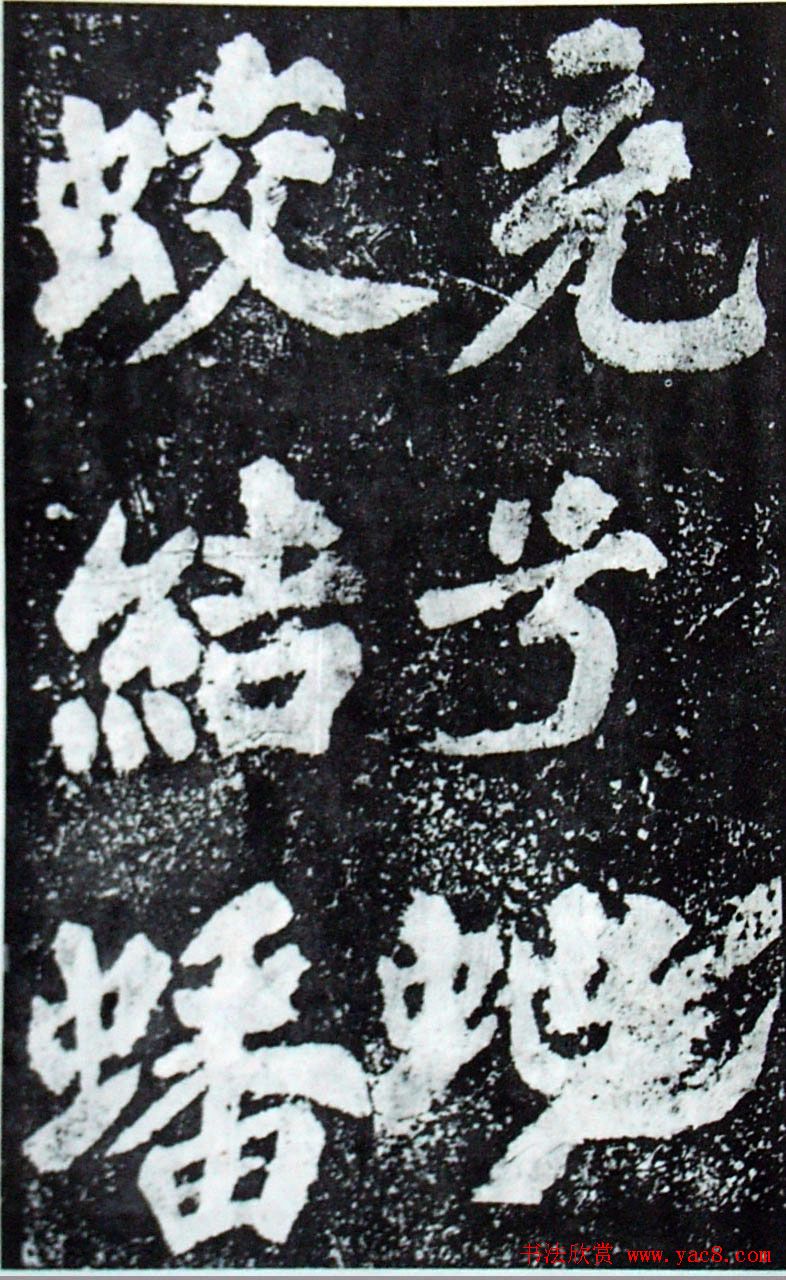 充兮虵
蛟結蟠
书法欣赏 www.yac8.com